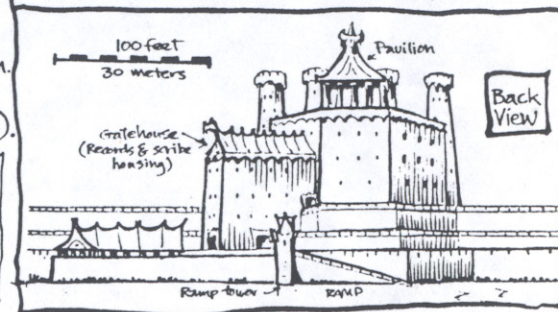 100 feet
30 meters
Pavilion
Back
View
Gatehouse
(Records & scribe
housing)
Ramp tower
RAMP